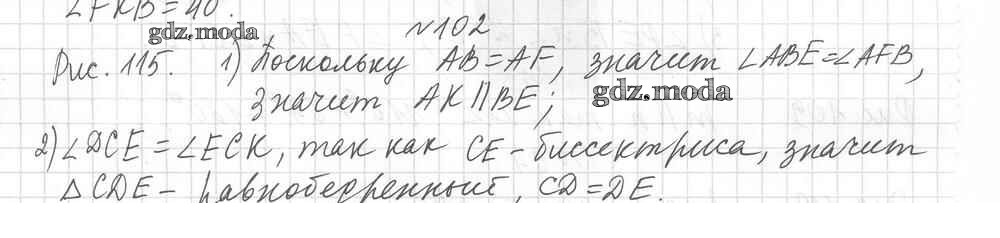 ∠FKB=40°.
№102
gdz.moda
Рис. 115. 1) Поскольку AB=AF, значит ∠ABE=∠AFB,
значит AK∥BE;
gdz.moda
2) ∠DCE=∠ECK, так как CE-биссектриса, значит
△CDE- равнобедренный, CD=DE.